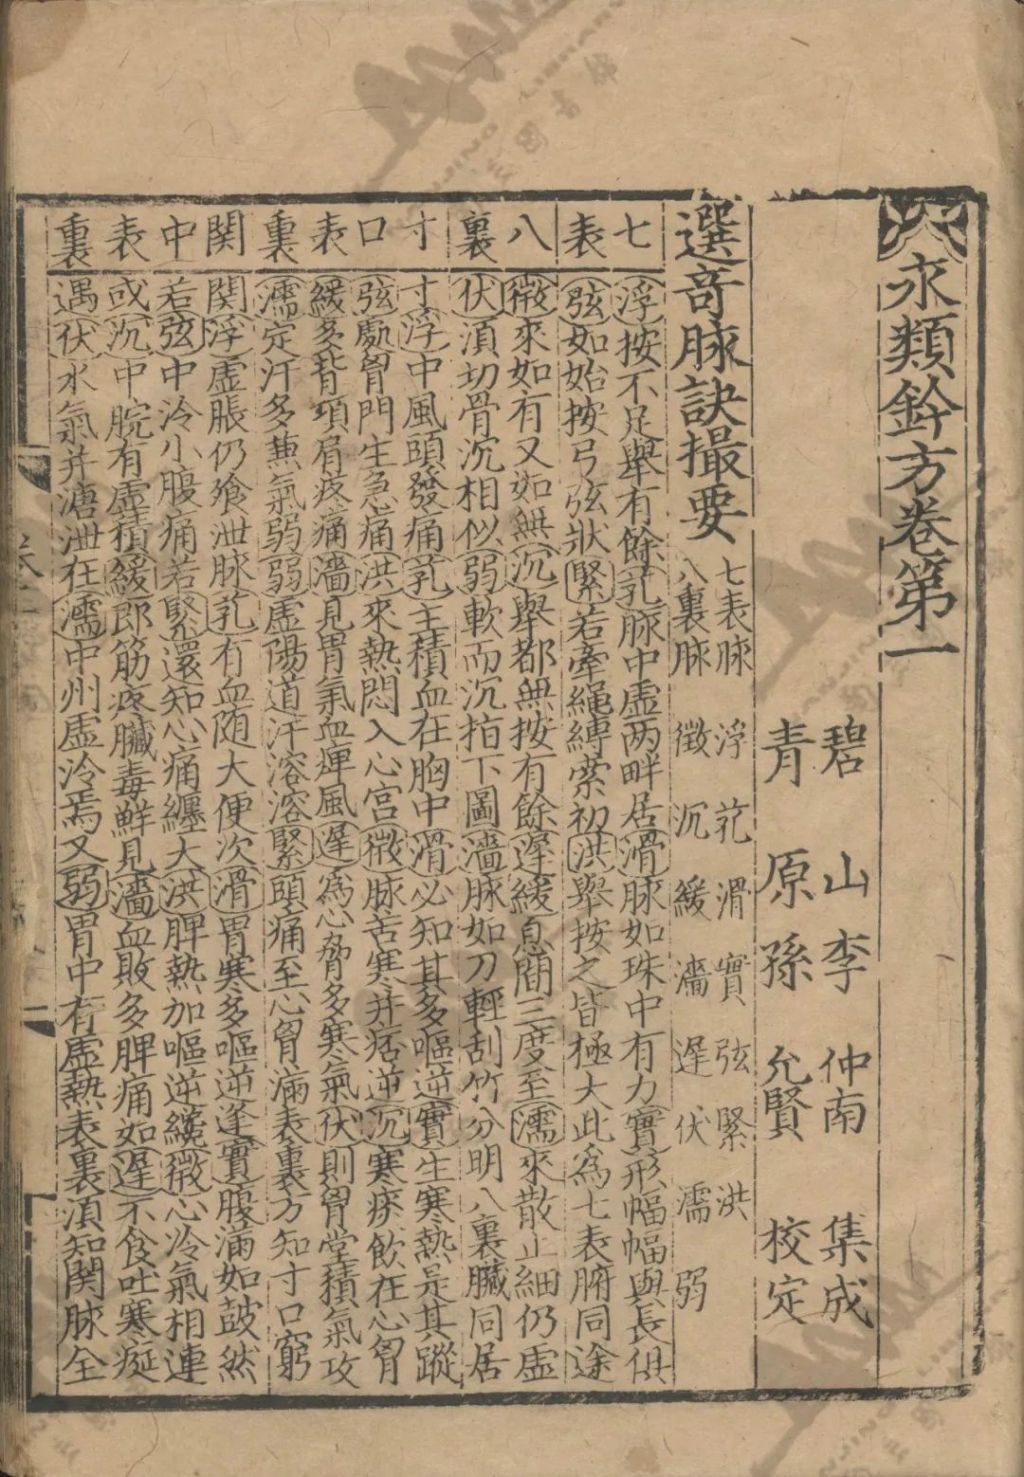 永類鈐方卷第一
碧山李仲南集成
青原孫允賢校定
選奇脉訣撮要
七表脉 浮芤滑實弦緊洪
八裏脉 微沉緩濇遲伏濡弱
七 浮按不足舉有餘芤脉中虛两畔居滑脉如珠中有力實形愊愊與長俱
表 弦如始按弓弦狀緊若牽繩縳索初洪舉按之皆極大此為七表腑同途
八 微來如有又如無沉舉都無按有餘遲緩息間三度至濡來散止細仍虛
裏 伏湏切骨沉相似弱軟而沉指下圖濇脉如刀輕刮竹分明八裏臟同居
寸 寸浮中風頭發痛芤主積血在胸中滑必知其多嘔逆實生寒熱是其蹤
口 弦處胷門生急痛洪來熱悶入心宫微脉苦寒并痞逆沉寒痰飲在心胷
表 緩多背項肩疼痛濇見胃氣血痺風遲為心脅多寒氣伏則胷堂積氣攻
裏 濡定汗多蒸氣弱弱虛陽道汗溶溶緊頭痛至心胷滿表裏方知寸口窮
関 関浮虛脹仍飱泄脉芤有血随大便次滑胃寒多嘔逆逢實腹滿如鼓然
中 若弦中冷小腹痛若緊還知心痛纏大洪脾熱加嘔逆纔微心冷氣相連
表 或沉中脘有虛積緩郎筋疼臟毒鮮見濇血敗多脾痛如遲不食吐寒涎
裏 遇伏水氣并溏泄在濡中州虛冷焉又弱胃中有虛熱表裏湏知関脉全